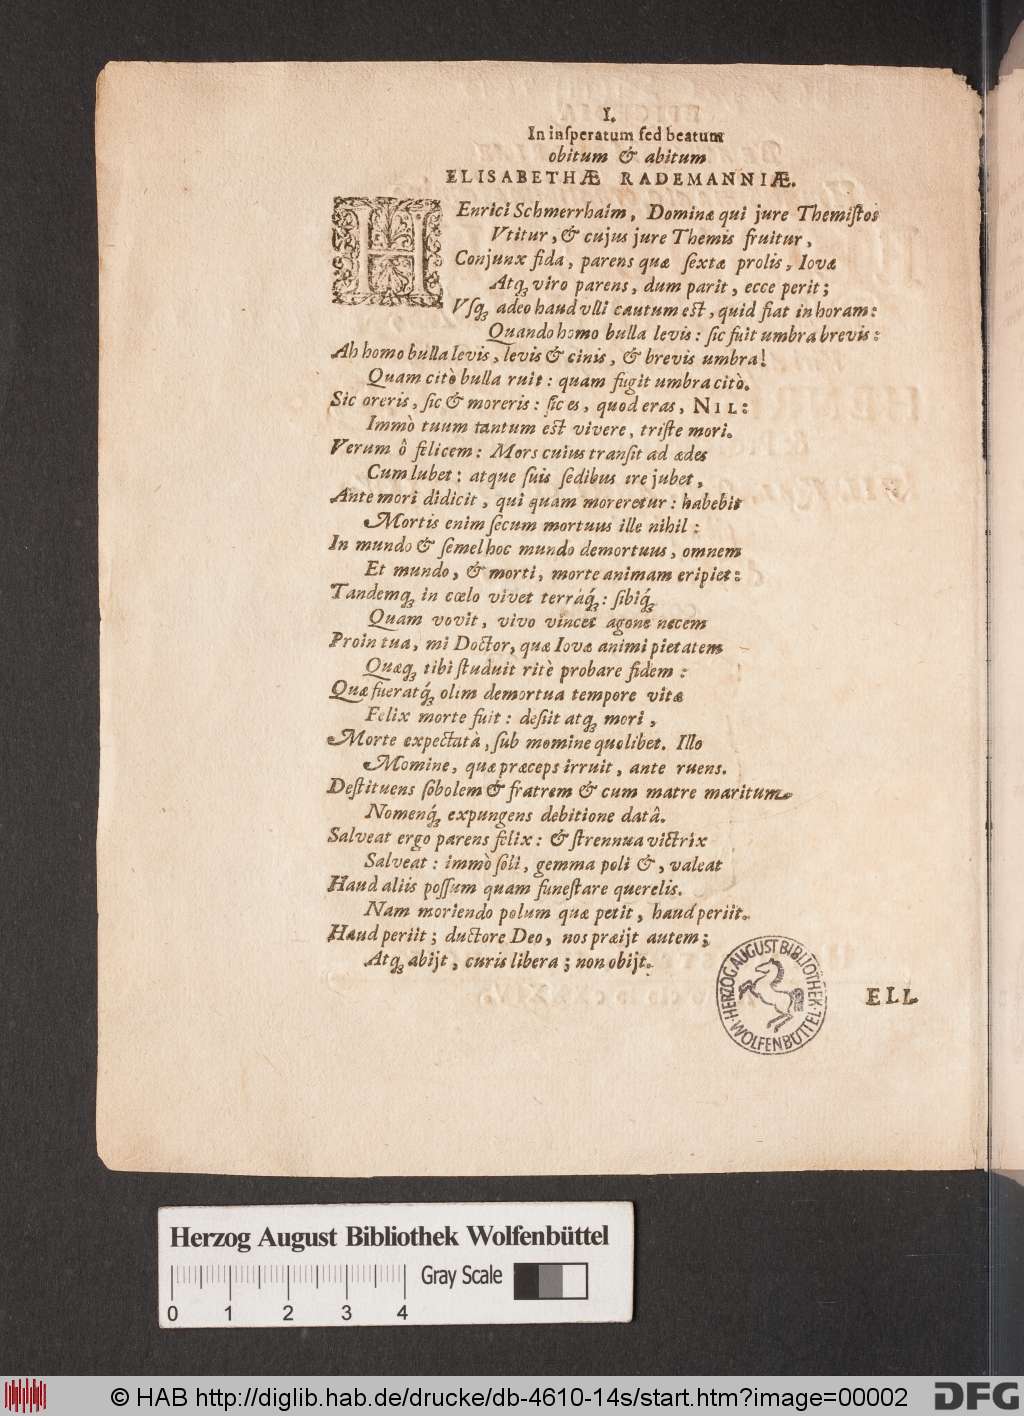 I.
In inſperatum ſed beatum
obitum & abitum
ELISABETHÆ RADEMANNIÆ.
HEnrici Schmerrhaim, Dominæ qui jure Themiſtos
Vtitur, & cujus jure Themis fruitur,
Conjunx fida, parens quæ ſextæ prolis, Iovæ
Atq; viro parens, dum parit, ecce perit;
Vſq; adeo haud vlli cautum est, quid fiat in horam:
Quando homo bulla levis: ſic fuit umbra brevis:
Ah homo bulla levis, levis & cinis, & brevis umbra!
Quam citò bulla ruit: quam fugit umbra citò.
Sic oreris, ſic & moreris: ſic es, quod eras, NIL:
Immò tuum tantum est vivere, triſte mori.
Verum ô felicem: Mors cuius tranſit ad ædes
Cum lubet: atque ſuis ſedibus ire jubet,
Ante mori didicit, qui quam moreretur: habebit
Mortis enim ſecum mortuus ille nihil:
In mundo & ſemel hoc mundo demortuus, omnem
Et mundo, & morti, morte animam eripiet:
Tandemq; in cœlo vivet terráq;: ſibiq;
Quam vovit, vivo vincet agone necem
Proin tua, mi Doctor, quæ Iovæ animi pietatem
Quæq; tibi ſtuduit ritè probare fidem:
Quæ fueratq; olim demortua tempore vitæ
Felix morte fuit: deſiit atq; mori,
Morte expectatà, ſub momine quolibet. Illo
Momine, quæ præceps irruit, ante ruens.
Deſtituens ſobolem & fratrem & cum matre maritum
Nomenq; expungens debitione datâ.
Salveat ergo parens felix: & ſtrennua victrix
Salveat: immò ſoli, gemma poli &, valeat
Haud aliis poſſum quam funeſtare querelis.
Nam moriendo polum quæ petit, haud periit.
Haud periit; ductore Deo, nos præijt autem;
Atq; abijt, curis libera; non obijt.
ELL
HERZOG AUGUST BIBLIOTHEK
WOLFENBÜTTEL
Herzog August Bibliothek Wolfenbüttel
Gray Scale
0 1 2 3 4
© HAB http://diglib.hab.de/drucke/db-4610-14s/start.htm?image=00002
DFG